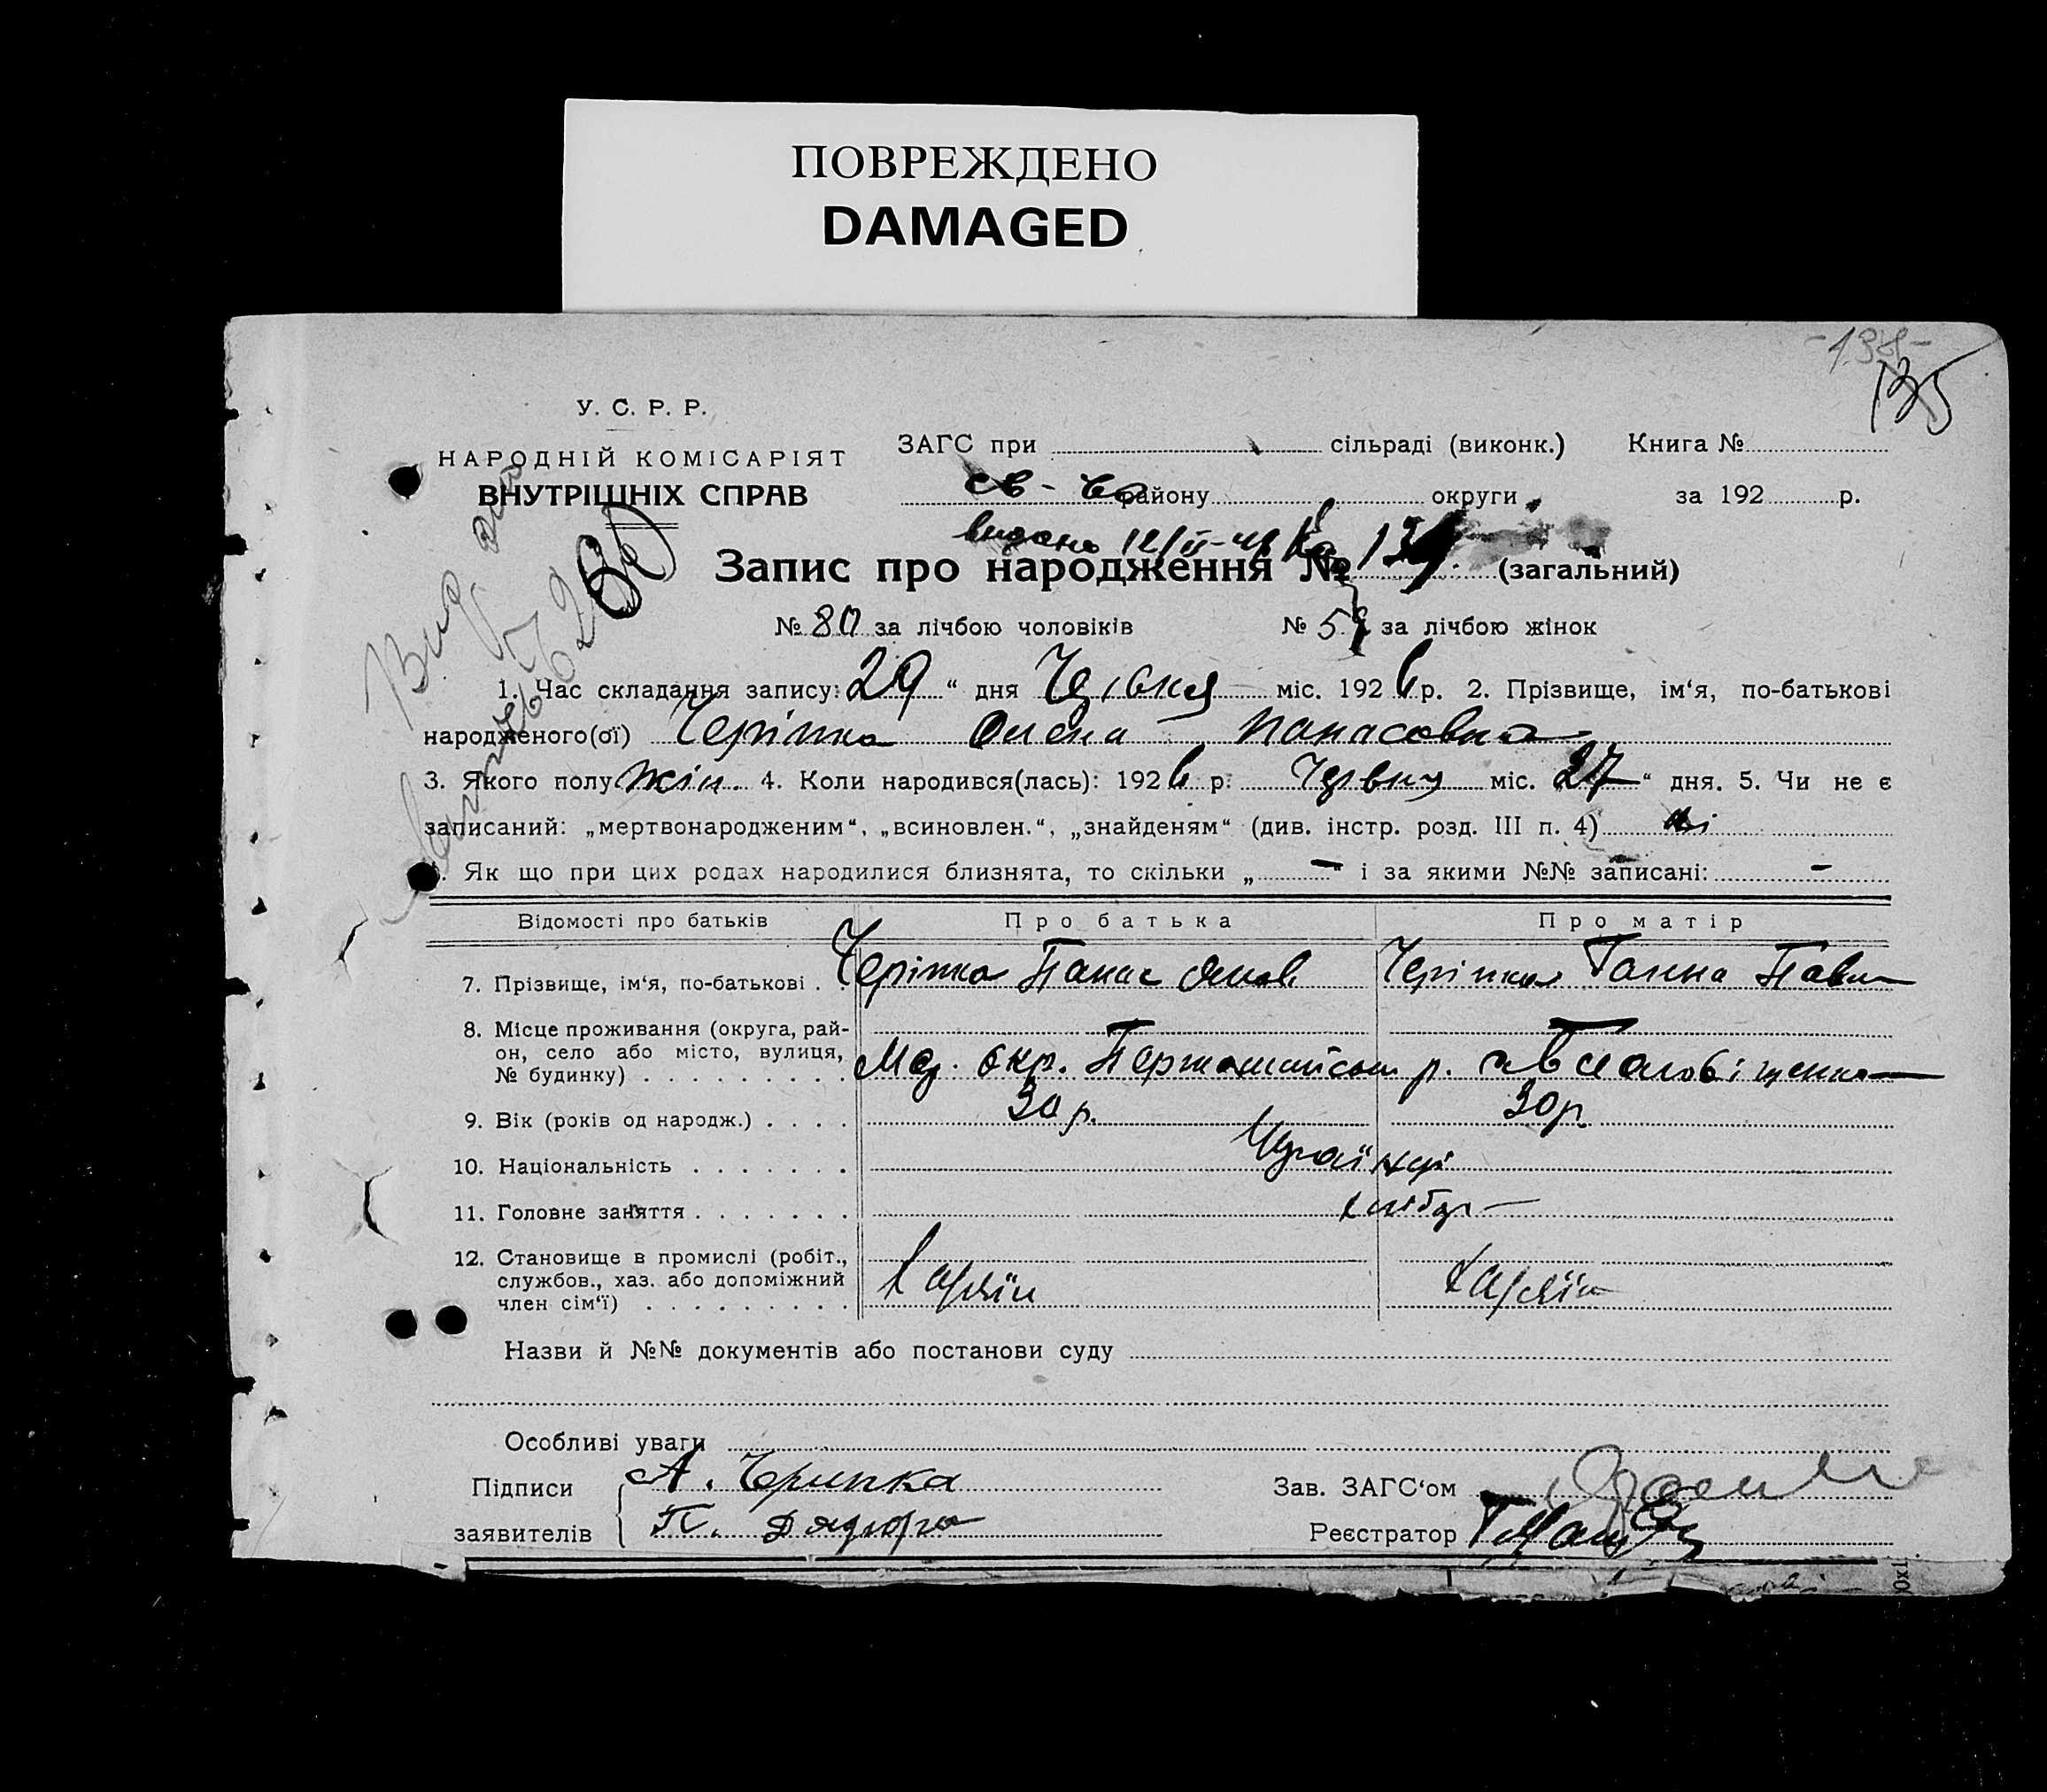 ПОВРЕЖДЕНО
DAMAGED
135
У. С. Р. Р.
НАРОДНІЙ КОМІСАРІЯТ
ВНУТРІШНІХ СПРАВ
ЗАГС при сільраді (виконк.) Книга №
св-во району округи за 192 р.
видано
Запис про народження № (загальний)
№ 80 за лічбою чоловіків № 59 за лічбою жінок
1. Час складання запису: 29 “ дня Червня міс. 1926 р. 2. Прізвище, ім‘я, по-батькові
народженого(ої) Черіпка Олена Панасовна
3. Якого полу жін. 4. Коли народився(лась): 1926 р. Червня міс. 27 “ дня. 5. Чи не є
записаний: „мертвонародженим“, „всиновлен.“, „знайденям“ (див. інстр. розд. III п. 4) ні
. Як що при цих родах народилися близнята, то скільки „ – “ і за якими №№ записані: –
Відомості про батьків Про батька Про матір
7. Прізвище, ім‘я, по-батькові . . Черіпка Панас Черіпка Ганна Павл
8. Місце проживання (округа, рай-
он, село або місто, вулиця,
№ будинку) . . . . . . . . . окр. р.
9. Вік (років од народж.) . . . . 30 р. 30 р
10. Національність . . . . . . .
11. Головне заняття . . . . . . . хлібор
12. Становище в промислі (робіт.,
службов., хаз. або допоміжний
член сім‘ї) . . . . . . . . .
Назви й №№ документів або постанови суду
Особливі уваги
Підписи А. Черипка Зав. ЗАГС‘ом
заявителів П. Дядюра Реєстратор